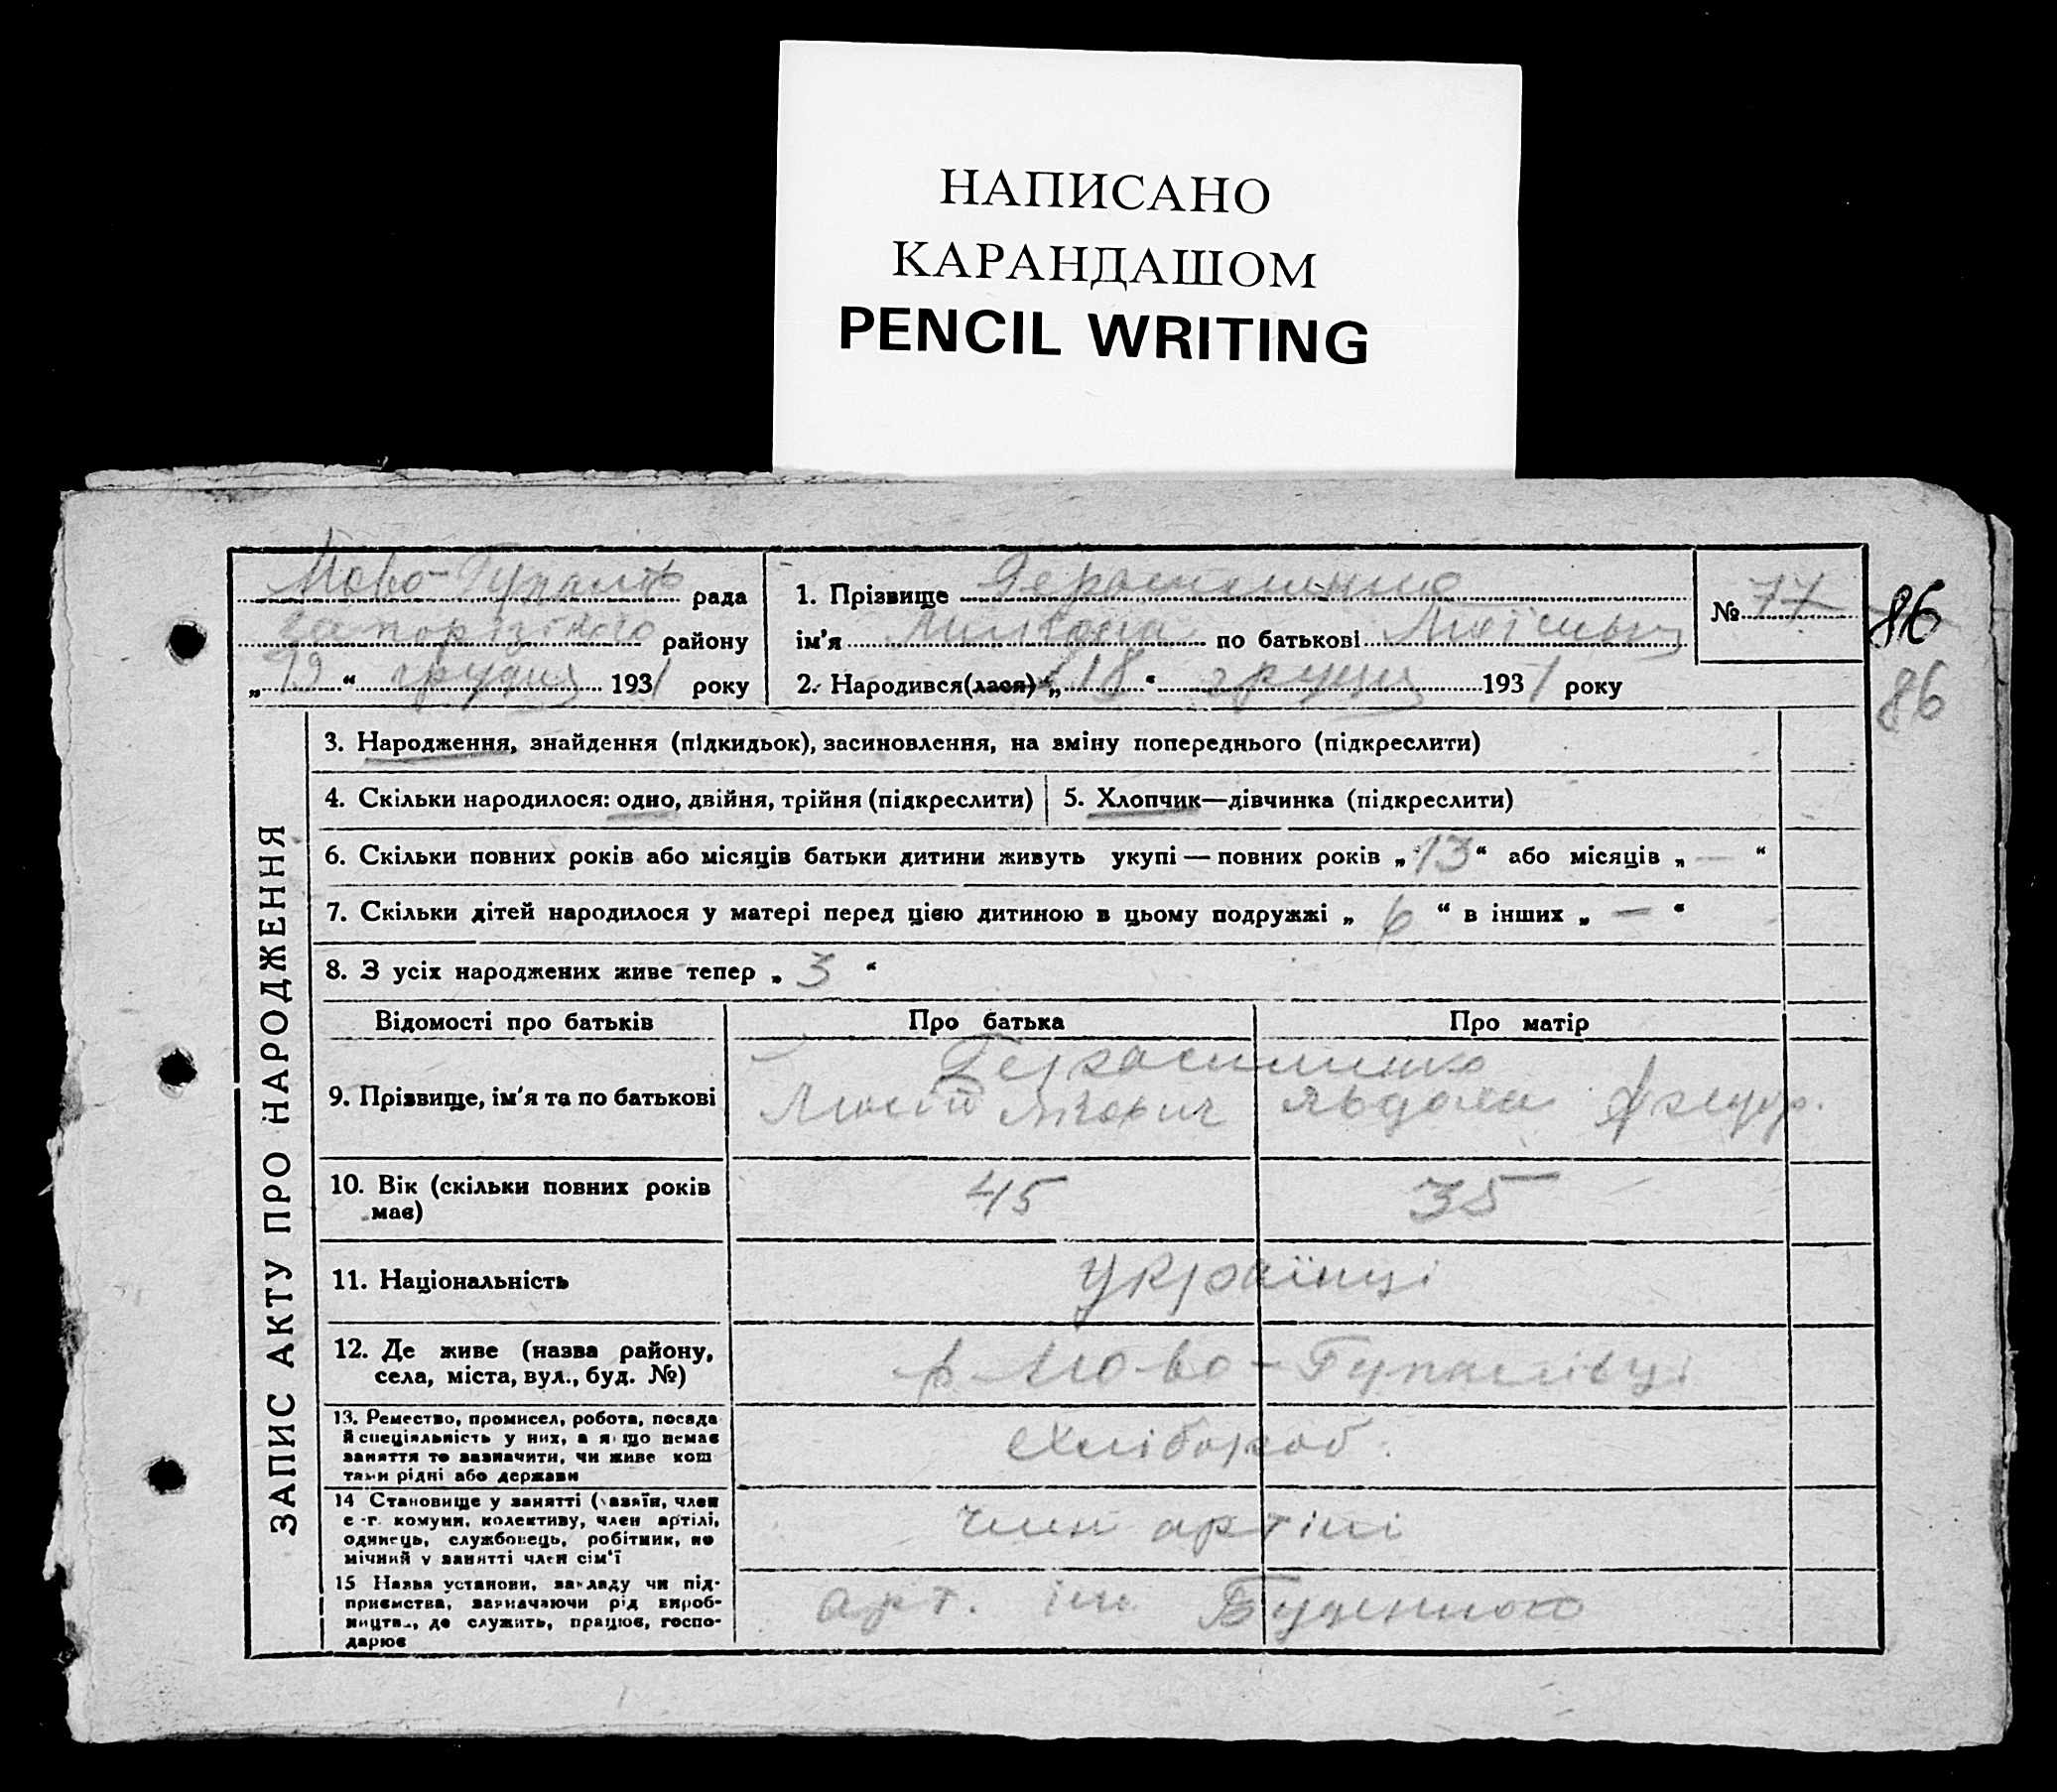 НАПИСАНО
КАРАНДАШОМ
PENCIL WRITING
Ново-Гупалів рада
Запорізького району
„19“ грудня 1931 року
1. Прізвище Герасименко
ім'я Микола по батькові
2. Народився(лася) „18“ грудня 1931 року
№ 77
86
86
ЗАПИС АКТУ ПРО НАРОДЖЕННЯ
3. Народження, знайдення (підкидьок), засиновлення, на зміну попереднього (підкреслити)
4. Скільки народилося: одно, двійня, трійня (підкреслити)
5. Хлопчик—дівчинка (підкреслити)
6. Скільки повних років або місяців батьки дитини живуть укупі — повних років „13“ або місяців „—“
7. Скільки дітей народилося у матері перед цією дитиною в цьому подружжі „6“ в інших „—“
8. З усіх народжених живе тепер „3“
Відомості про батьків Про батька Про матір
9. Прізвище, ім'я та по батькові
Герасименко
Мосій Явдоха Федор.
10. Вік (скільки повних років має) 45 35
11. Національність Українці
12. Де живе (назва району,
села, міста, вул., буд. №)
в Ново-Гупалівці
13. Ремество, промисел, робота, посада
й спеціяльність у них, а якщо немає
заняття то зазначити, чи живе кош
тами рідні або держави
хлібороб.
14 Становище у занятті (хазяїн, член
с.-г. комуни, колективу, член артілі,
одинець, службовець, робітник, по
мічний у занятті член сім'ї
член артілі
15 Назва установи, закладу чи під-
приємства, зазначаючи рід вироб-
ництва, де служить, працює, госпо-
дарює
арт. ім Буденного